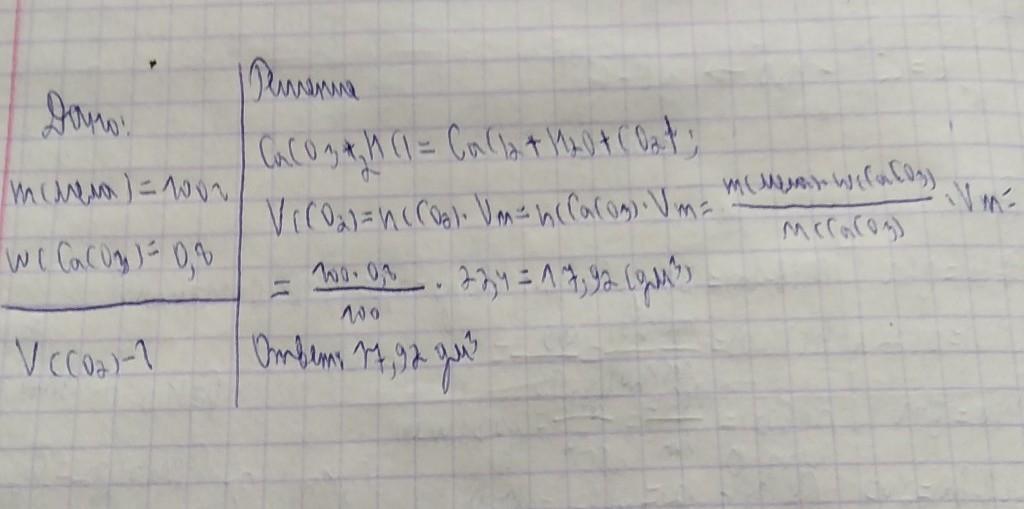 Дано:
m(мела) = 100г
w(CaCO3) = 0,8
V(CO2) - ?
Решение
CaCO3 + 2HCl = CaCl2 + H2O + CO2↑;
V(CO2) = n(CO2) · Vm = n(CaCO3) · Vm = m(мела) · w(CaCO3) / M(CaCO3) · Vm =
= 100 · 0,8 / 100 · 22,4 = 17,92 (дм³)
Ответ: 17,92 дм³